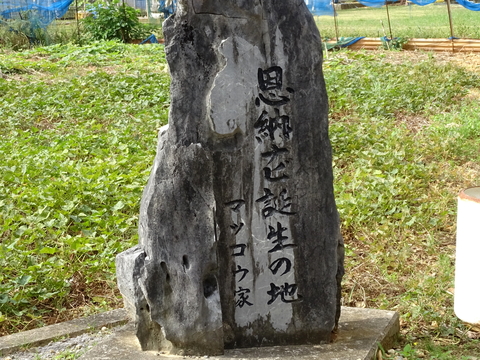 恩納ナビ誕生の地
マツコウ家